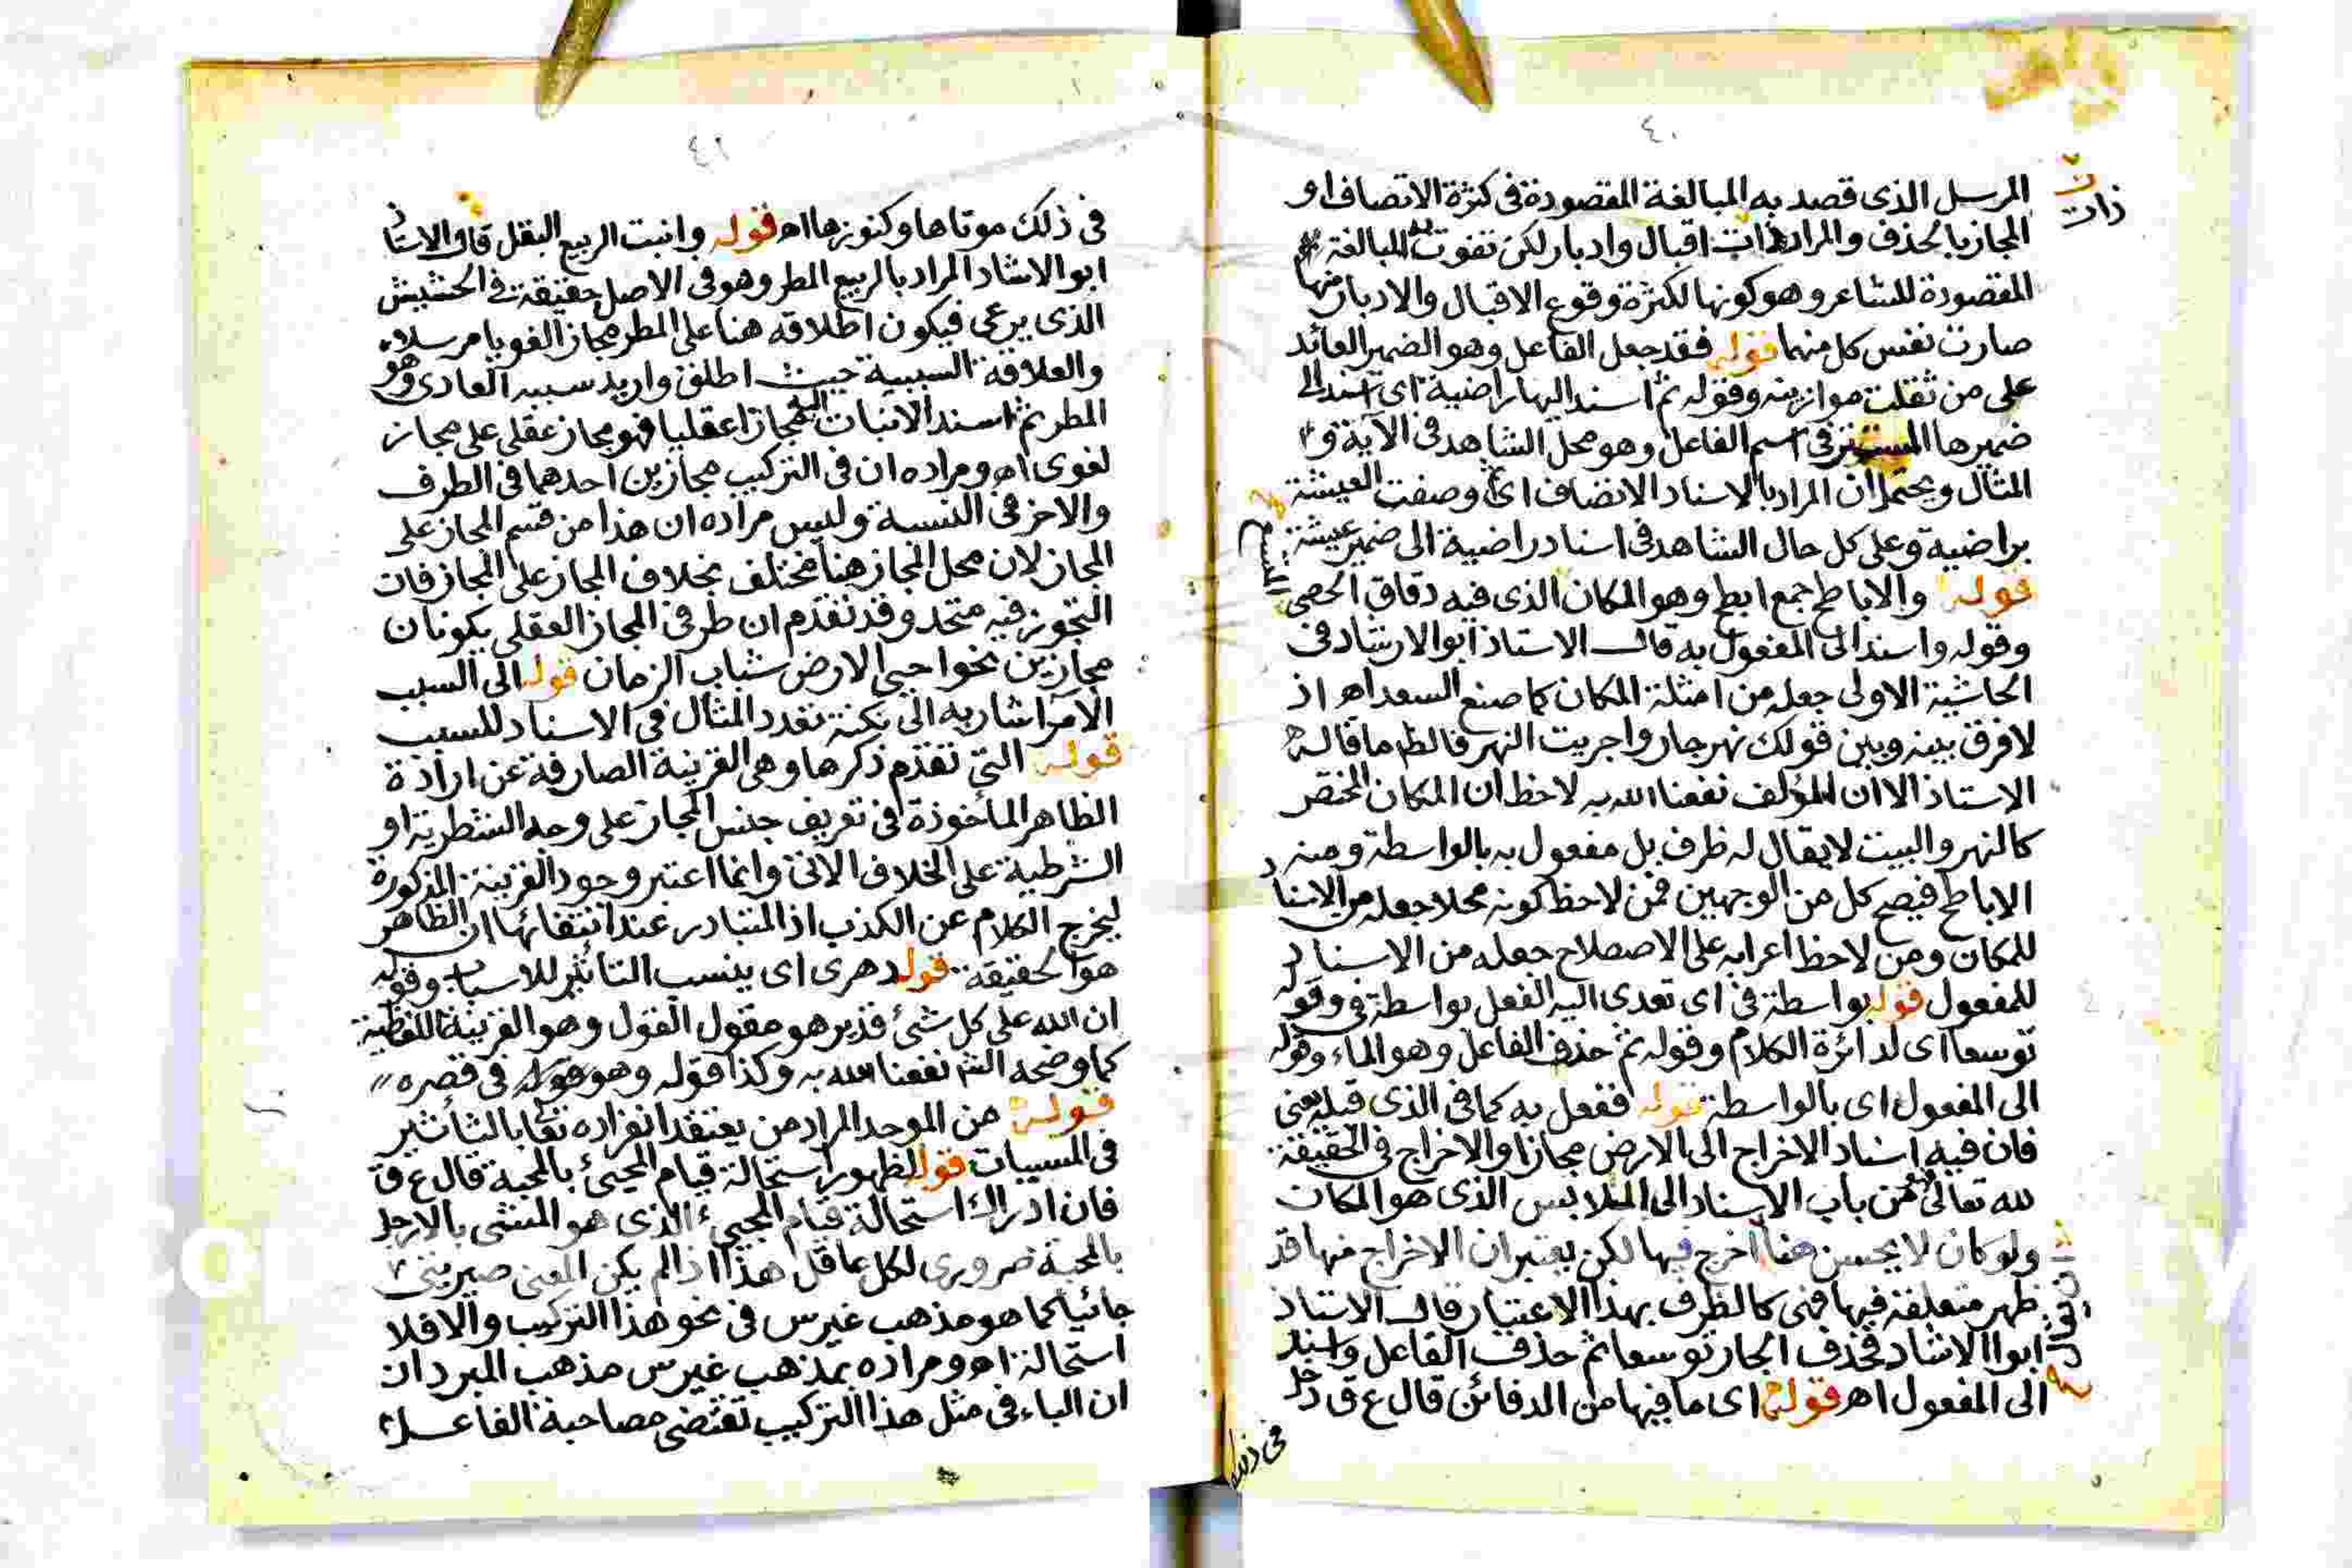 ٤٠
المرسل الذى قصد به المبالغة المقصودة فى كثرة الاتصاف او
ذات
المجاز بالحذف والمراد ذات اقبال وادبار لكن تفوت به المبالغة
المقصودة للشاعر وهو كونها لكثرة وقوع الاقبال والادبار منها
صارت نفس كل منهما قوله فقد جعل الفاعل وهو الضمير العائد
على من ثقلت موازينه وقوله ثم اسند اليها راضية اى اسند الى
ضميرها المستتر فى اسم الفاعل وهو محل الشاهد فى الآية و
المثال ويحتمل ان المراد بالاسناد الاتصاف اى وصفت العيشة
براضية وعلى كل حال الشاهد فى اسناد راضية الى ضمير عيشة
قوله والاباطح جمع ابطح وهو المكان الذى فيه دقاق الحصى
وقوله واسند الى المفعول به قال الاستاذ ابو الارشاد فى
الحاشية الاولى جعله من امثلة المكان كما صنع السعد اه اذ
لا فرق بينه وبين قولك نهر جار واجريت النهر فالظ ما قاله
الاستاذ الا ان المؤلف نفعنا الله به لاحظ ان المكان المختص
كالنهر والبيت لا يقال له ظرف بل مفعول به بالواسطة ومنه
الاباطح فيصح كل من الوجهين فمن لاحظ كونه محلا جعله من الاسناد
للمكان ومن لاحظ اعرابه على الاصطلاح جعله من الاسناد
للمفعول قوله بواسطة فى اى تعدى اليه الفعل بواسطة فى وقوله
توسعا اى لدائرة الكلام وقوله ثم حذف الفاعل وهو الماء وقوله
الى المفعول اى بالواسطة قوله ففعل به كما فى الذى قبله يعنى
فان فيه اسناد الاخراج الى الارض مجازا والاخراج فى الحقيقة
لله تعالى فهو من باب الاسناد الى الملابس الذى هو المكان
ولو كان لا يحسن هنا اخرج فيها لكن يعتبر ان الاخراج منها قد
ظهر متعلقه فيها فهى كالظرف بهذا الاعتبار قال الاستاذ
ابوا الاشاد فحذف الجار توسعا ثم حذف الفاعل واسند
الى المفعول اه قوله اى ما فيها من الدفائن قال ع ق دخل
فى ذلك
٤١
فى ذلك موتاها وكنوزها اه قوله وانبت الربيع البقل قال الاستاذ
ابو الاشاد المراد بالربيع المطر وهو فى الاصل حقيقة فى الحشيش
الذى يرعى فيكون اطلاقه هنا على المطر مجازا لغويا مرسلا
والعلاقة السببية حيث اطلق واريد سببه العادى وهو
المطر ثم اسند الانبات اليه مجازا عقليا فهو مجاز عقلى على مجاز
لغوى اه ومراده ان فى التركيب مجازين احدهما فى الطرف
والاخر فى النسبة وليس مراده ان هذا من قسم المجاز على
المجاز لان محل المجاز هنا مختلف بخلاف المجاز على المجاز فان
التجوز فيه متحد وقد تقدم ان طرفى المجاز العقلى يكونان
مجازين نحو احيى الارض شباب الزمان قوله الى السبب
الآمر اشار به الى نكتة تعدد المثال فى الاسناد للسبب
قوله التى تقدم ذكرها وهى القرينة الصارفة عن ارادة
الظاهر المأخوذة فى تعريف جنس المجاز على وجه الشطرية او
الشرطية على الخلاف الاتى وانما اعتبر وجود القرينة المذكورة
ليخرج الكلام عن الكذب اذ المتبادر عند انتفائها ان الظاهر
هو الحقيقة قوله دهرى اى ينسب التأثير للاسباب وقوله
ان الله على كل شئ قدير هو مقول القول وهو القرينة اللفظية
كما وضحه الش نفعنا الله به وكذا قوله وهو قوله فى قصره
قوله من الموحد المراد من يعتقد انفراده تعا بالتأثير
فى المسببات قوله لظهور استحالة قيام المجيئ بالمحبة قال ع ق
فان ادراك استحالة قيام المجيء الذى هو المشى بالارجل
بالمحبة ضرورى لكل عاقل هذا اذا لم يكن المعنى صيرتنى
جائيا كما هو مذهب غير س فى نحو هذا التركيب والا فلا
استحالة اه ومراده بمذهب غير س مذهب المبرد ان
ان الباء فى مثل هذا التركيب تقتضى مصاحبة الفاعل